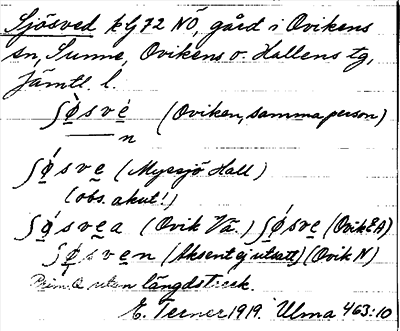 Sjösved kbg 72 NO, gård i Ovikens
sn, Sunne, Ovikens o. Hallens tg,
Jämtl. l.
ʃø̀své (Oviken, samma person)
n
ʃǿsve (Myssjö Hall)
(obs. akut!)
ʃǿsvea (Ovik Vä.) ʃǿsve (Ovik EA)
ʃøsven (Aksent ej utsatt) (Ovik N)
utan längdstreck.
E. Terner 1919. Ulma 463:10